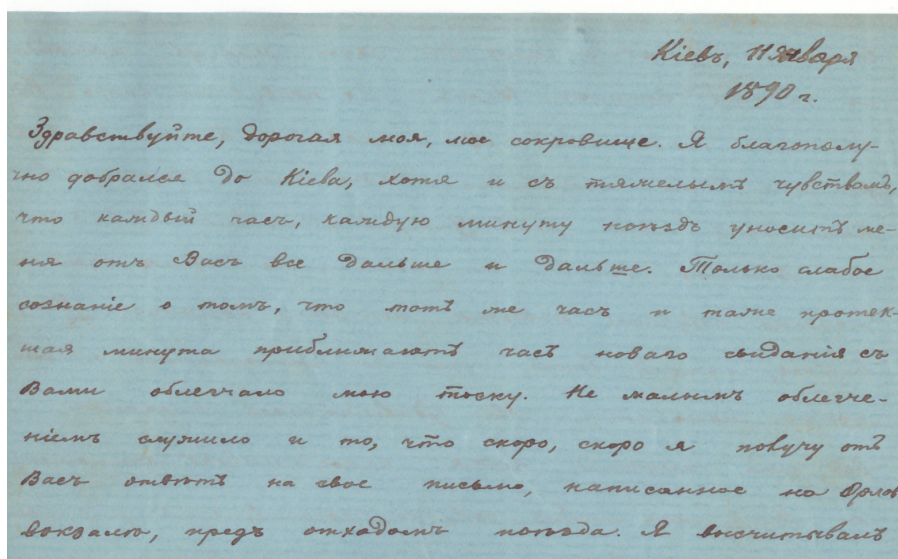 Кіевъ, 11 января
1890 г.
Здравствуйте, дорогая моя, мое сокровище. Я благополу-
чно добрался до Кіева, хотя и съ тяжелымъ чувствомъ,
что каждый часъ, каждую минуту поѣздъ уноситъ ме-
ня отъ Васъ все дальше и дальше. Только слабое
сознаніе о томъ, что тотъ же часъ и таже протек-
шая минута приближаютъ часъ новаго свиданія съ
Вами облегчало мою тоску. Не малымъ облегче-
ніемъ служило и то, что скоро, скоро я получу отъ
Васъ отвѣтъ на свое письмо, написанное на Орлов
вокзалѣ, предъ отходомъ поѣзда. Я высчитывалъ